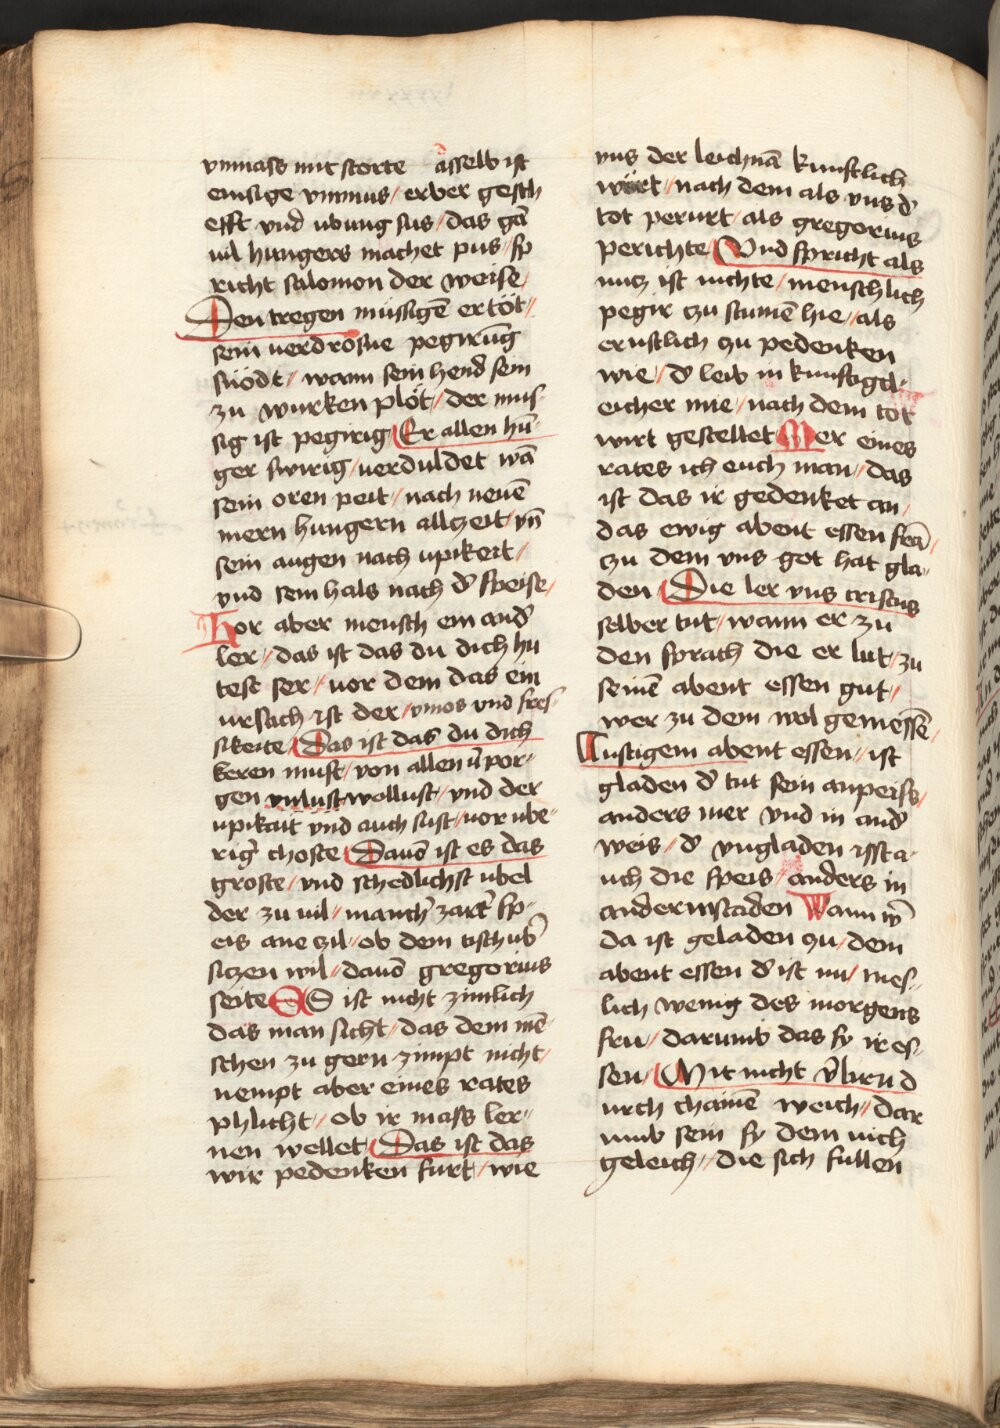 vnmass mit storte asselb ist
einsige vnmus / erber gesch
efft vnd ubung sus / das gar̄
uil hungers machet pus / sp
richt salomon der weise /
Den tregen mussigē er tot //
sein uerdrosne pegirūg
snödt / wann sein hend sein
zu wurken plöt / der mus-
sig ist pegirig Er allen hū-
ger swirig / verduldet wā
sein oren peit / nach neuē
mern hungern allczeit / vn̄
sein augen nach upikeit /
vnd sein hals nach d' speise /
Hor aber mensch ein and'
ler / das ist das du dich hu
test ser / vor dem das ein
ursach ist der / vnos vnd fres-
sikeite / Das ist das du dich
keren must / von allen v'por-
gen vnlust wollust / vnd der
upikait vnd auch sust / vor ube-
rig' choste Dauō ist es das
groste / vnd schedlichst ubel
der zu uil / manch' zart' sp-
eis ane zil / ob dem tisch ub'
siczen wil / dauō gregorius
seite ES ist nicht zimlich
das man sicht / das dem mē-
schen zu gern zimpt nicht /
nempt aber eines rates
phlicht / ob ir mass ler-
nen wellet Das ist das
wir pedenken furt / wie
vns der leichnā kunstlich
wirt / nach dem als vns d'
tot perurt / als gregorius
perichte Vnd spricht als
nucz ist nichte / menschlich
pegir czu stumē hie / als
ernstlich zu pedenken
wie / d' leib in kunftigcl-
eicher mie / nach dem tot
wirt gestellet Mer eines
rates ich euch man / das
ist das ir gedenket an /
das ewig abent essen frā /
czu dem vns got hat gla-
den Die ler vns cristus
selber tut / wann er zu
den sprach die er lut / zu
seinē abent essen gut /
wer zu dem wol gemessē /
Lustigem abent essen / ist
gladen d' tut sein anpeiss /
anders mer vnd in and'
weis / d' vngladen isst a-
uch die speis / anders in
andern staden Wann w'
da ist geladen czu / dem
abent essen d' ist nu / mes-
lich wenig des morgens
fru / darumb das sy ir es-
sen / Mit nicht v'lirn d
urch chainē weich / dar
umb sein sy dem nich
geleich / die sich fullen